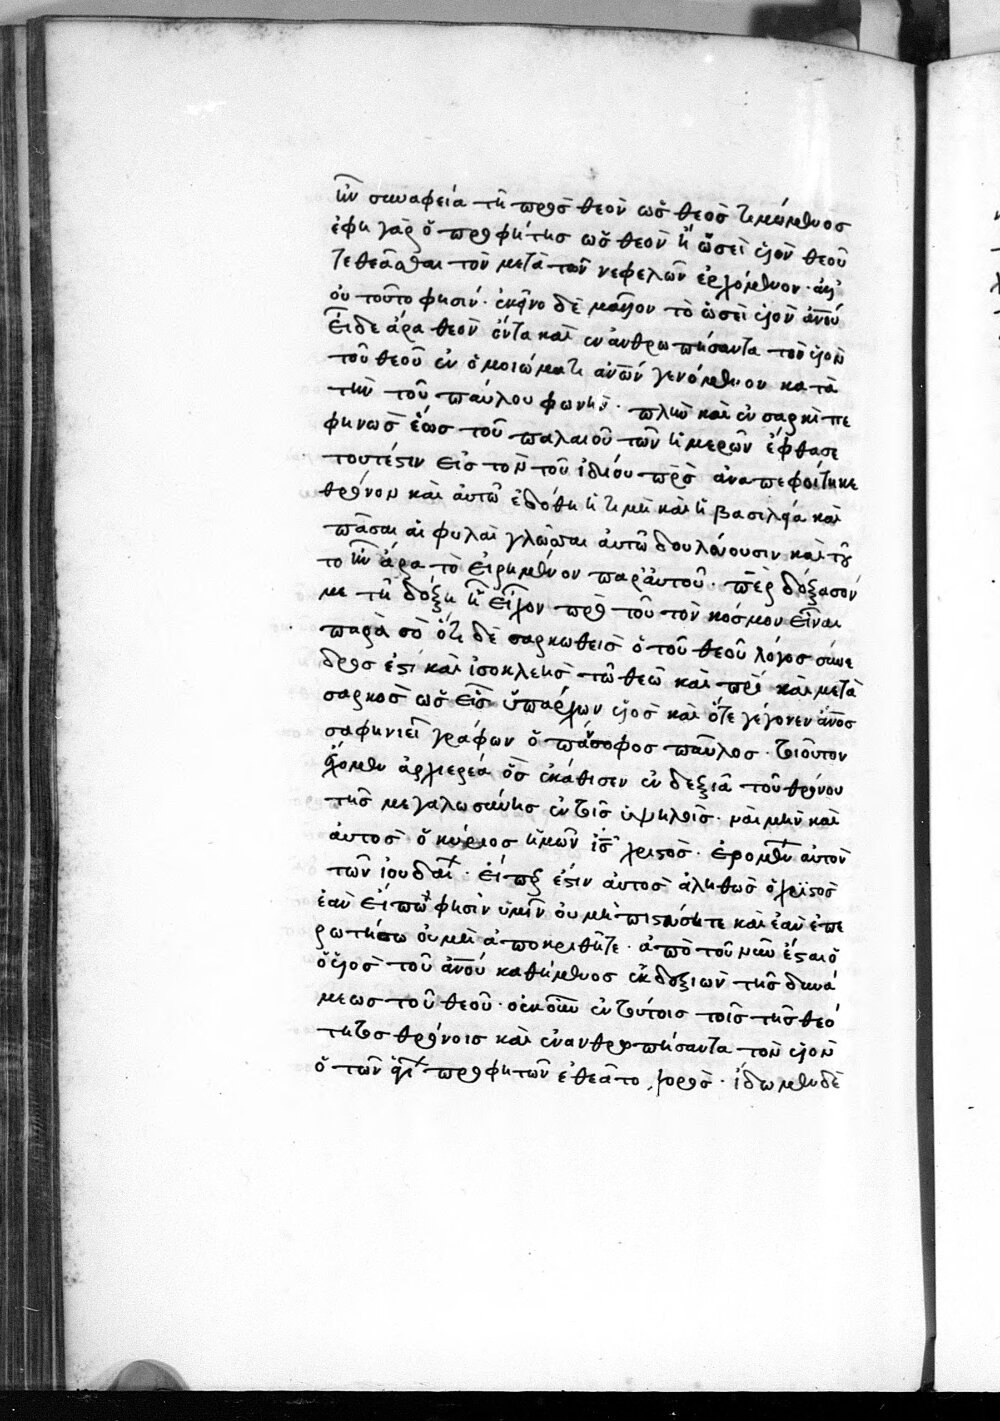 ἦν συναφεία τῆ πρὸς θεὸν ὡς θεὸς τιμώμενος
ἔφη γὰρ ὁ προφήτης ὡς θεὸν ἢ ὡσεὶ υἱὸν θεοῦ
τεθεᾶσθαι τὸν μετὰ τῶν νεφελῶν ἐρχόμενον·
οὐ τοῦτο φησίν· ἐκεῖνο δὲ μᾶλλον τὸ ὡσεὶ υἱὸν ἀνου
εἶδε ἄρα θεὸν ὄντα καὶ ἐνανθρωπήσαντα τὸν υἱὸν
τοῦ θεοῦ ἐν ὁμοιώματι ἀνων γενόμενον κατὰ
τὴν τοῦ παύλου φωνήν· πλὴν καὶ ἐν σαρκὶ πε
φηνὼς ἕως τοῦ παλαιοῦ τῶν ἡμερῶν ἔφθασε
τουτέστιν εἰς τὸν τοῦ ἰδίου πρς ἀναπεφοίτηκε
θρόνον καὶ αὐτῶ ἐδόθη ἡ τιμὴ καὶ ἡ βασιλεία καὶ
πᾶσαι αἱ φυλαὶ γλῶσσαι αὐτῶ δουλεύουσιν καὶ τοῦ
το ἦν ἄρα τὸ εἰρημένον παρ αὐτοῦ· περ δόξασόν
με τῆ δόξη ἧ εἶχον πρὸ τοῦ τὸν κόσμον εἶναι
παρὰ σὸ ὅτι δὲ σαρκωθεὶς ὁ τοῦ θεοῦ λόγος σύνε
δρος ἐστὶ καὶ ἰσοκλεὴς τῶ θεῶ καὶ πρὶ καὶ μετὰ
σαρκὸς ὡς εἷς ὑπάρχων υἱὸς καὶ ὅτε γέγονεν ἄνος
σαφηνιεῖ γράφων ὁ πάνσοφος παῦλος· τοιοῦτον
ἔχομεν ἀρχιερέα ὃς ἐκάθισεν ἐν δεξιᾶ τοῦ θρόνου
τῆς μεγαλωσύνης ἐν τοῖς ὑψηλοῖς· ναὶ μὴν καὶ
αὐτὸς ὁ κύριος ἡμῶν ις χριστὸς· ἐρομένων αὐτὸν
τῶν ἰουδαίων· εἴπερ ἐστιν αὐτὸς ἀληθῶς ὁ χριστὸς
ἐὰν εἴπω φησὶν ὑμῖν οὐ μὴ πιστεύσητε καὶ ἐὰν ἐπε
ρωτήσω οὐ μὴ ἀποκριθῆτε· ἀπὸ τοῦ νῦν ἔσται ὁ
ὁ υἱὸς τοῦ ἀνου καθήμενος ἐκ δεξιῶν τῆς δυνά
μεως τοῦ θεοῦ· οὐκοῦν ἐν τούτοις τοῖς τῆς θεό
τητος θρόνοις καὶ ἐνανθρωπήσαντα τὸν υἱὸν
ὁ τῶν ἁγίων προφητῶν ἐθεᾶτο χορὸς· ἴδωμεν δὲ